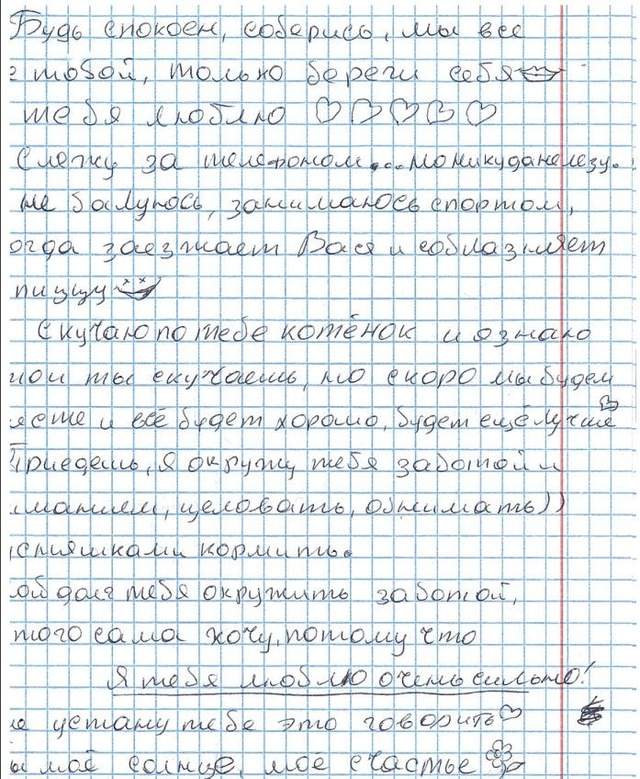 Будь спокоен, соберись, мы все
с тобой, только береги себя
тебя люблю
Слежу за телефоном... но никуда не лезу.
не балуюсь, занимаюсь спортом,
огда заезжает Вася и соблазняет
пиццу
Скучаю по тебе котёнок и я знаю
ты скучаешь, но скоро мы будем
есте и всё будет хорошо, будет ещё лучше
Приедешь, я окружу тебя заботой и
манием, целовать, обнимать))
кормить.
тебя окружить заботой,
того сама хочу, потому что
Я тебя люблю очень сильно!
не устану тебе это говорить
ы моё солнце, моё счастье